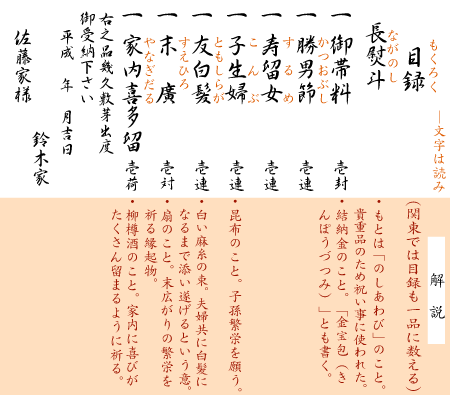 ―文字は読み
もくろく
目録
ながのし
長熨斗
一 御帯料 壱封
かつおぶし
一 勝男節 壱連
するめ
一 寿留女 壱連
こんぶ
一 子生婦 壱連
ともしらが
一 友白髪 壱連
すえひろ
一 末廣 壱対
やなぎだる
一 家内喜多留 壱荷
右之品幾久敷芽出度
御受納下さい
平成 年 月吉日
鈴木家
佐藤家様
解説
(関東では目録も一品に数える)
・もとは「のしあわび」のこと。
貴重品のため祝い事に使われた。
・結納金のこと。「金宝包(き
んぽうづつみ)」とも書く。
・昆布のこと。子孫繁栄を願う。
・白い麻糸の束。夫婦共に白髪に
なるまで添い遂げるという意。
・扇のこと。末広がりの繁栄を
祈る縁起物。
・柳樽酒のこと。家内に喜びが
たくさん留まるように祈る。